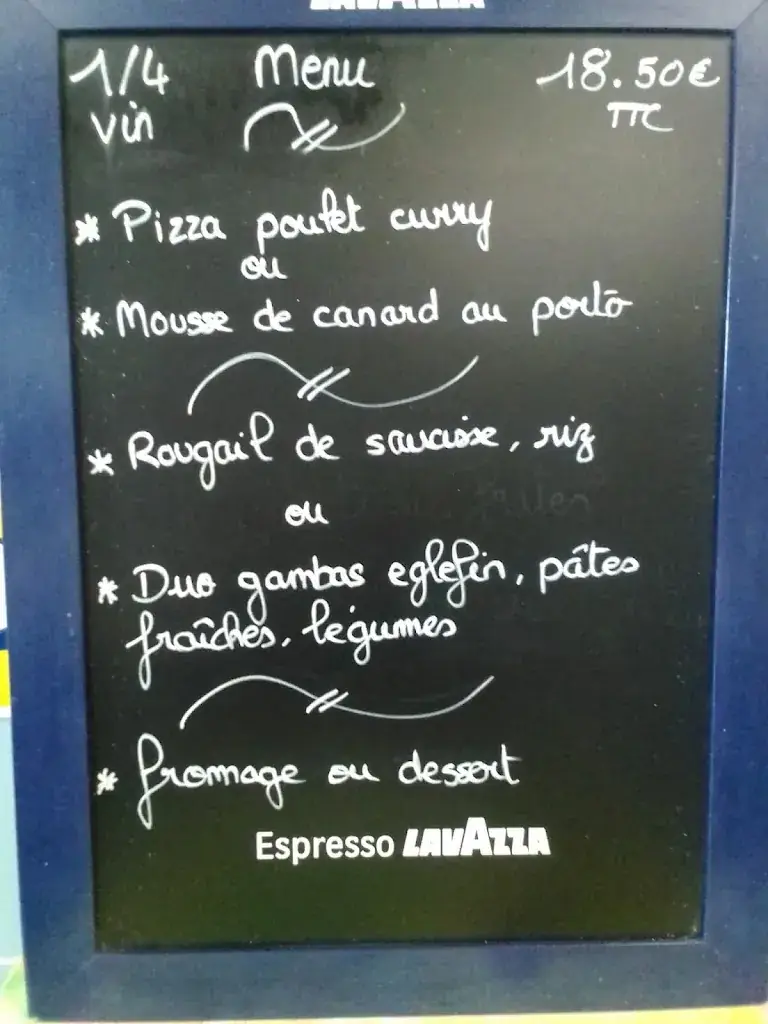 LAVAZZA
1/4 Menu 18.50€
vin TTC
* Pizza poulet curry
ou
* Mousse de canard au porto
* Rougail de saucisse, riz
ou
* Duo gambas eglefin, pâtes
fraîches, légumes
* fromage ou dessert
Espresso LAVAZZA